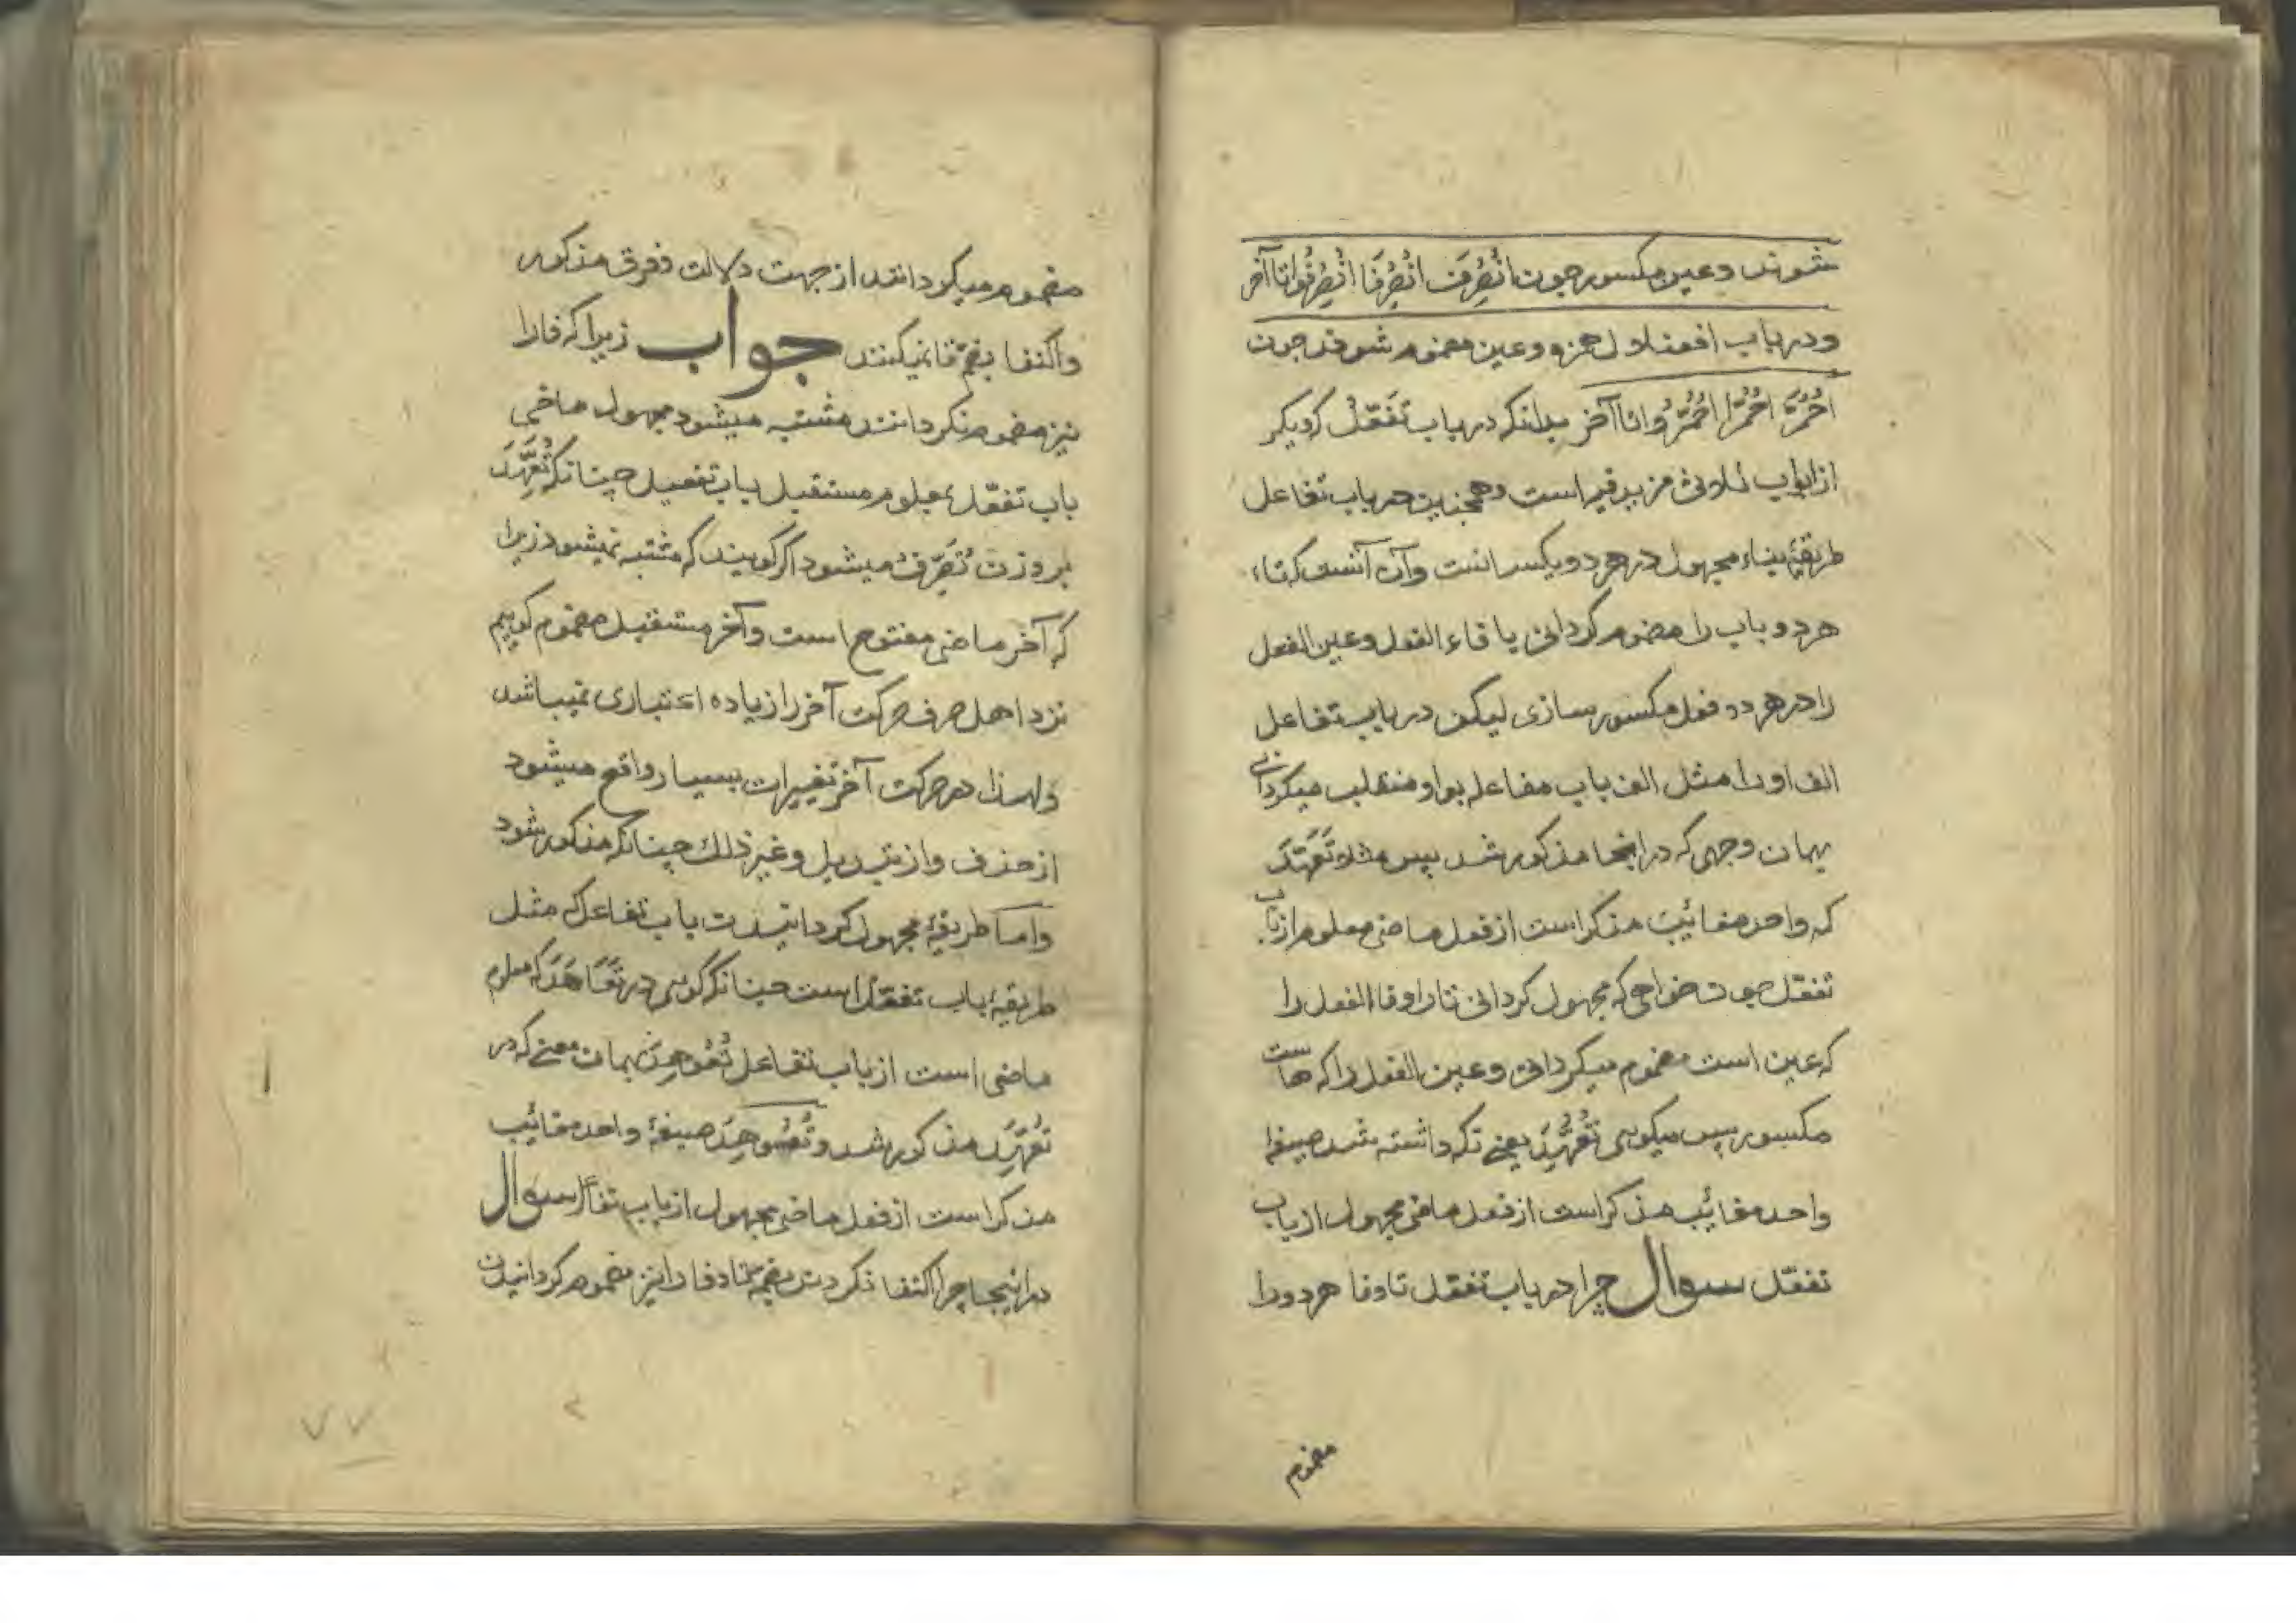 شوند و عین مکسور چون اُنْصُرِفَ اُنْصُرِفَا اُنْصُرِفُوا تا آخر
و در باب افعلال همزه و عین مضموم شوند چون
اُحْمُرَّ اُحْمُرَّا اُحْمُرُّوا تا آخر بدانکه در باب تَفَعُّلْ که دیکر
از ابواب ثلاثی مزید فیه است وهمچنین در باب تفاعل
طریقهٔ بناء مجهول در هر دو یکسانست وآن آنست که تاء
هر دو باب را مضموم کردانی با فاء الفعل وعین الفعل
را در هر دو فعل مکسور سازی لیکن در باب تفاعل
الف او را مثل الف باب مفاعله بواو منقلب میکردانی
بهمان وجهی که در اینجا مذکور شد پس مثلا تَعَهَّدَ
که واحد مغائب مذکر است از فعل ماضی معلوم از باب
تفعّل چون خواهی که مجهول کردانی تا را وفا الفعل را
که عین است مضموم میکردانی وعین الفعل را که هاست
مکسور پس میکویی تُعُهِّدَ یعنی نکه داشته شد صیغهٔ
واحد مغائب مذکر است از فعل ماضی مجهول از باب
تفعّل سوال چرا در باب تفعّل تا وفا هر دو را
مضموم
مضموم میکردانند از جهت دلالت وفرق مذکور
واکتفا بضمّ تا نمیکنند جواب زیرا که فا را
نیز مضموم نکردانند مشتبه میشود مجهول ماضی
باب تفعّل بمعلوم مستقبل باب تفعیل چنانکه تُعَهِّدَ
بر وزن تُصَرِّفُ میشود اکر کویند که مشتبه نمیشود زیرا
که آخر ماضی مفتوح است وآخر مستقبل مضموم کوییم
نزد اهل صرف حرکت آخر را زیاده اعتباری نمیباشد
ولهذا در حرکت آخر تغییرات بسیار واقع میشود
از حذف واز تبدیل وغیر ذلک چنانکه مذکور شود
واما طریقهٔ مجهول کردانیدن باب تفاعل که مثل
طریقهٔ باب تفعّل است چنانکه کویی در تَعَاهَدَ که معلوم
ماضی است از باب تفاعل تُعُوهِدَ بهمان معنی که در
تُعُهِّدَ مذکور شد و تُعُوهِدَ صیغهٔ واحد مغائب
مذکر است از فعل ماضی مجهول از باب تفاعل سوال
در اینجا چرا اکتفا نکردند بضمهٔ تا وفا را نیز مضموم کردانیدن
۷۷